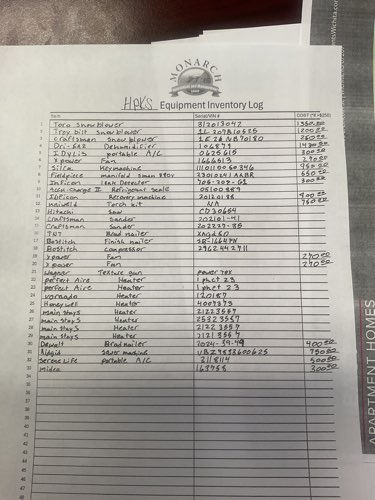 MONARCH
HPKS Equipment Inventory Log
Item Serial/VIN # COST (*if >$250)
1 Toro Snowblower 312013042 1350.00
2 Troy bilt snowblower 1200.00
3 Craftsman Snowblower 250.00
4 Dri-Eaz Dehumidifier 106879
5 portable A/C 0625619 300.00
6 Xpower Fan 1666613
7 Keymachine 111011060346
8 Fieldpiece manifold 23010241AABR 550.00
9 InFicon Leak Detector 705-203-G1 300.00
10 Refrigerant scale 08100887
11 InFicon Recovery machine 20120188 900.00
12 Torch kit N/A 750.00
13 Hitachi Saw CD30654
14 Craftsman Sander 202101-41
15 Craftsman Sander 202237-85
16 TNT Brad nailer
17 Bostitch Finish nailer
18 Bostitch compressor 2962442711
19 xpower Fan 270.00
20 xpower Fan 270.00
21 Wagner Texture gun power TEX
22 perfect Aire Heater 1phct 23
23 perfect Aire Heater 1phct 23
24 vornado Heater 120187
25 Honeywell Heater 4007373
26 main stays Heater 21223557
27 main stays Heater 25323557
28 main stays Heater 21223557
29 main stays Heater 21213557
30 Dewalt Bradnailer 2024-39-49 400.00
31 Ridgid sewer machine 750.00
32 Serene Life portable A/C 3118114 500.00
33 midea 163758 300.00
APARTMENT HOMES